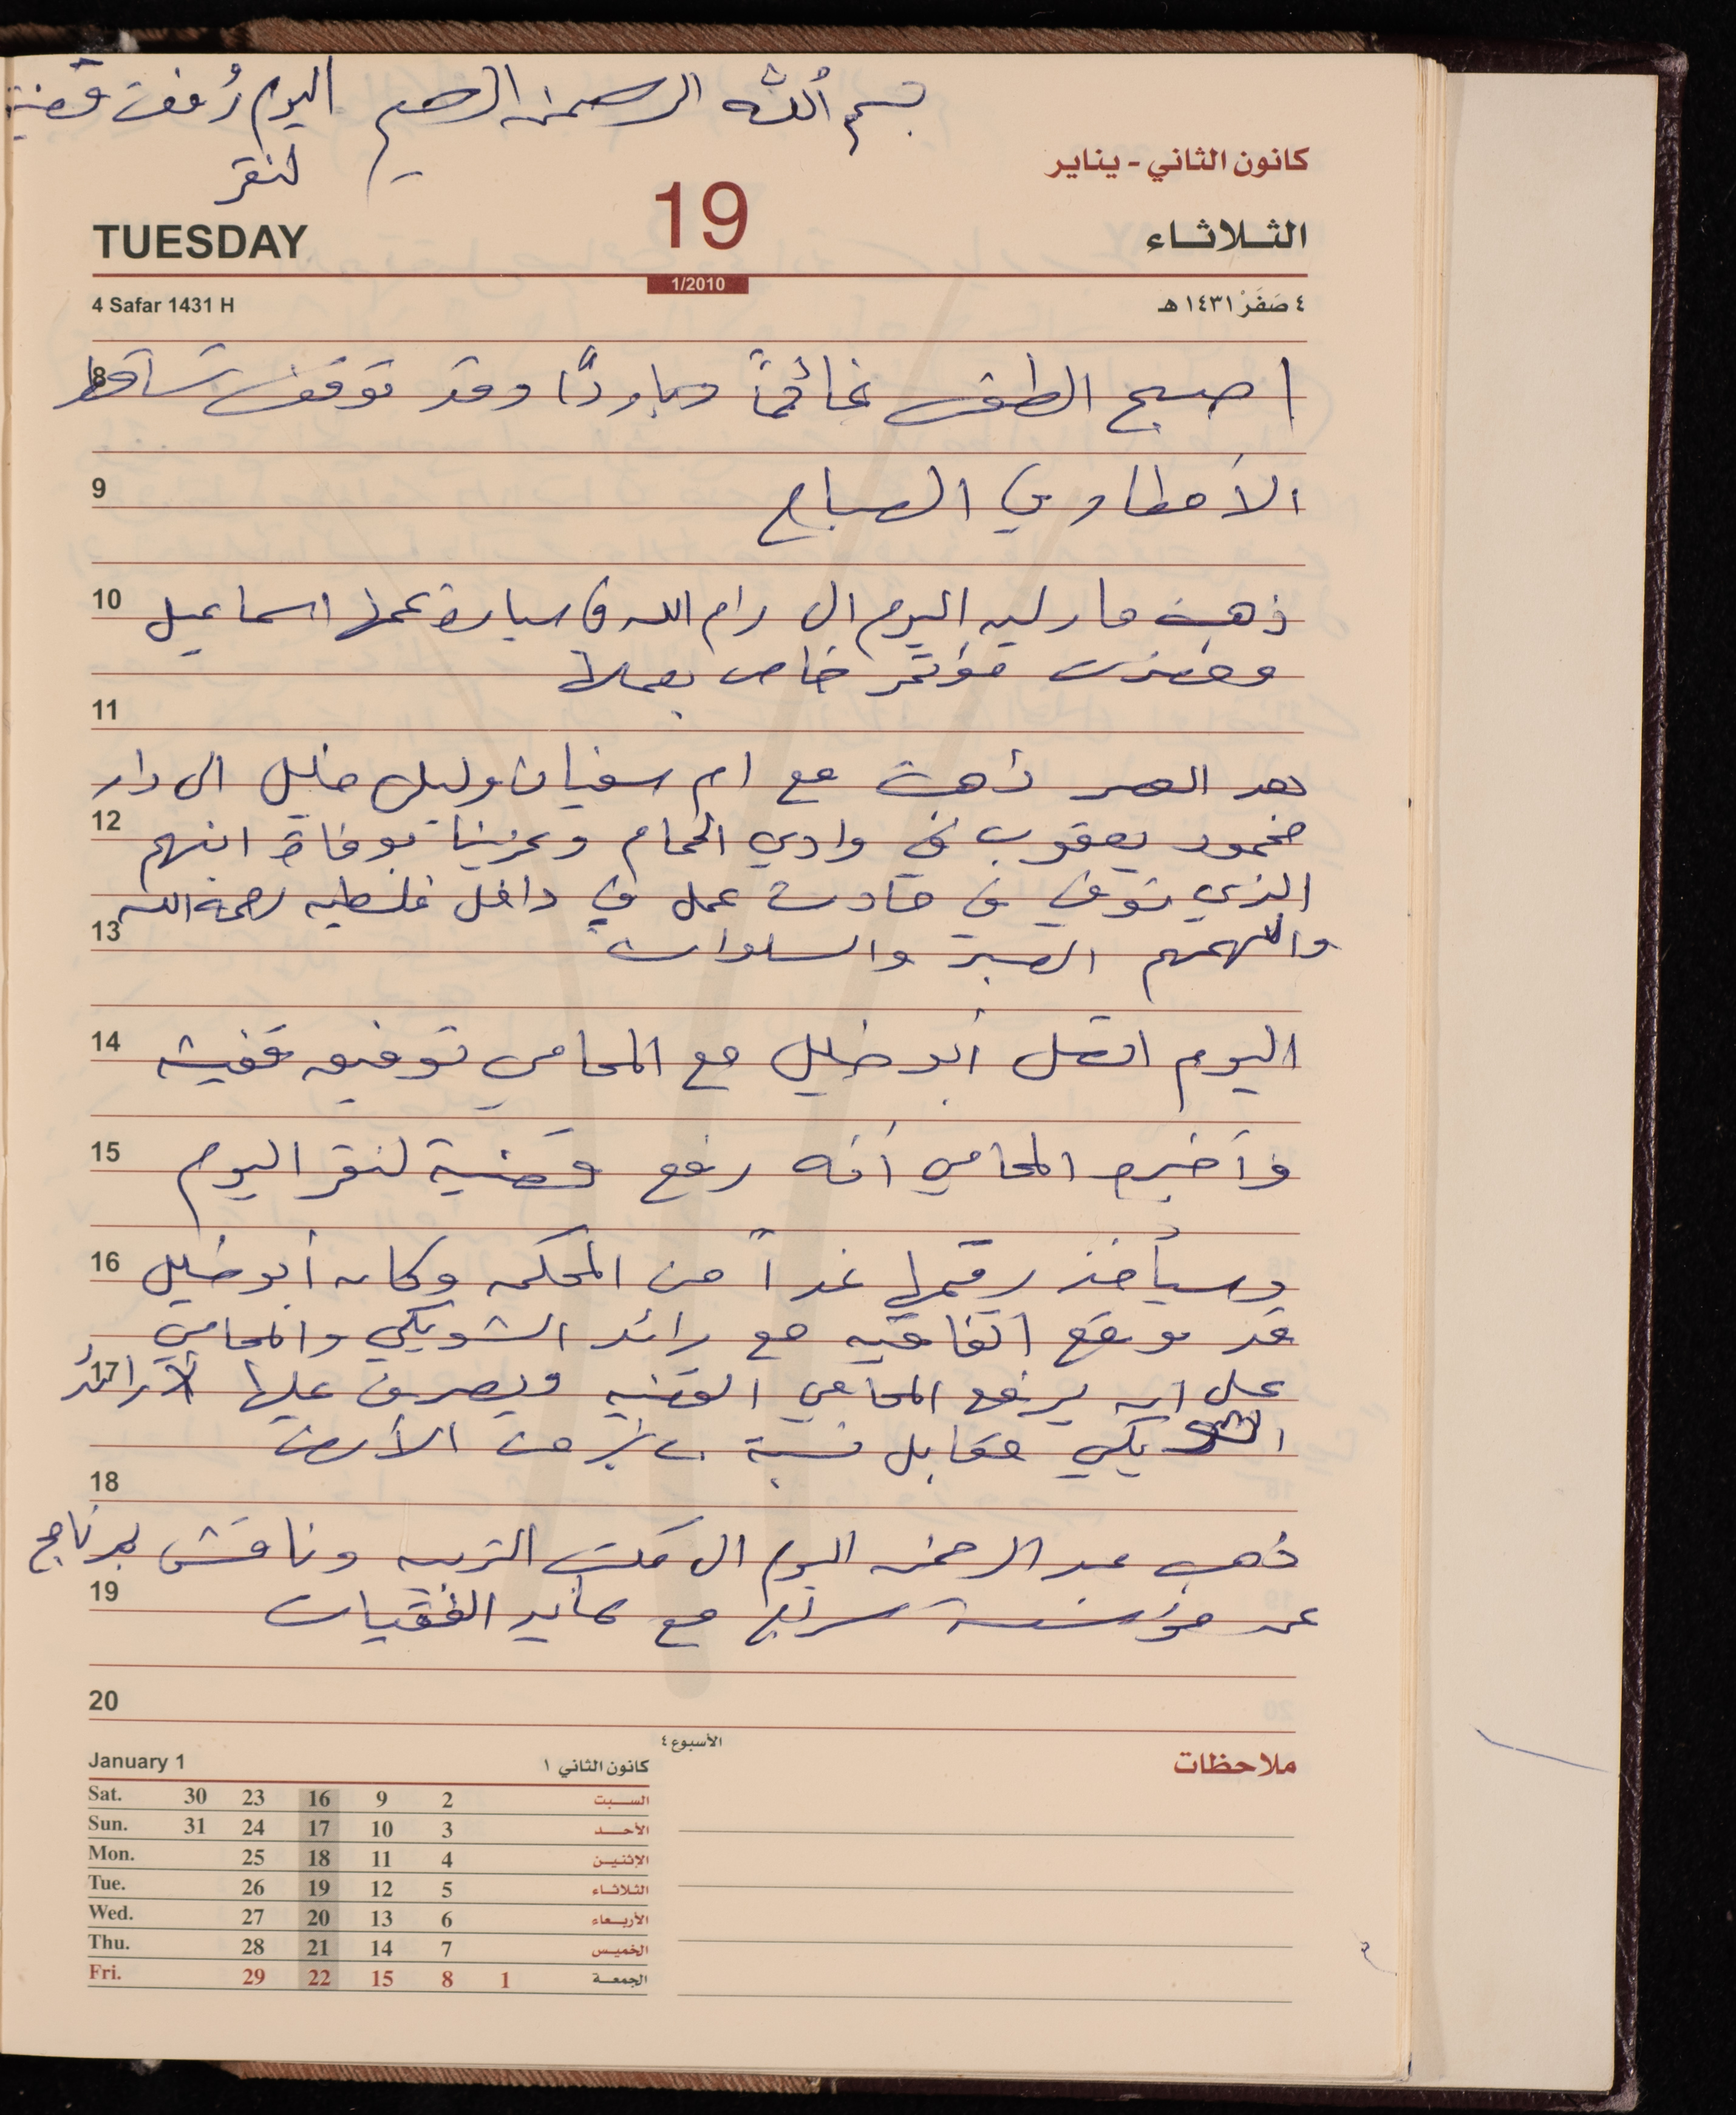 بسم الله الرحمن الرحيم اليوم رُفعت قضية
لنقر
كانون الثاني - يناير
TUESDAY 19 الثلاثاء
1/2010
4 Safar 1431 H ٤ صَفَرْ ١٤٣١ هـ
8 اصبح الطقس غائماً وبارداً وقد توقف تساقط
9 الأمطار في الصباح
10 ذهبت مارلين اليوم الى رام الله في سيارة عمها اسماعيل
وحضرت مؤتمر خاص بعملها
11
بعد العصر ذهبت مع ام سفيان وليلى خليل الى دار
12 محمود يعقوب في وادي الحمام وعزينا بوفاة ابنهم
الذي توفي في حادث عمل في داخل فلسطين رحمه الله
13 والهمهم الصبر والسلوان
14 اليوم اتصل أبو خليل مع المحامي توفيق قفيشه
15 وأخبره المحامي أنه رفع قضية لنقر اليوم
16 وسيأخذ رقمها غداً من المحكمه وكان أبو خليل
قد موقع اتفاقيه مع رائد الشويكي والمحامي
17 على ان يرفع المحامي القضيه ويصرف عليها رائد
الشويكي مقابل نسبة من الأرض
18
ذهب عبد الرحمن اليوم الى مكتب التربيه وناقش برنامج
19 عمد مؤسسة مع الفقيات
20
الأسبوع ٤
January 1 كانون الثاني ١ ملاحظات
Sat. 30 23 16 9 2 السبت
Sun. 31 24 17 10 3 الأحد
Mon. 25 18 11 4 الإثنين
Tue. 26 19 12 5 الثلاثاء
Wed. 27 20 13 6 الأربعاء
Thu. 28 21 14 7 الخميس
Fri. 29 22 15 8 1 الجمعة